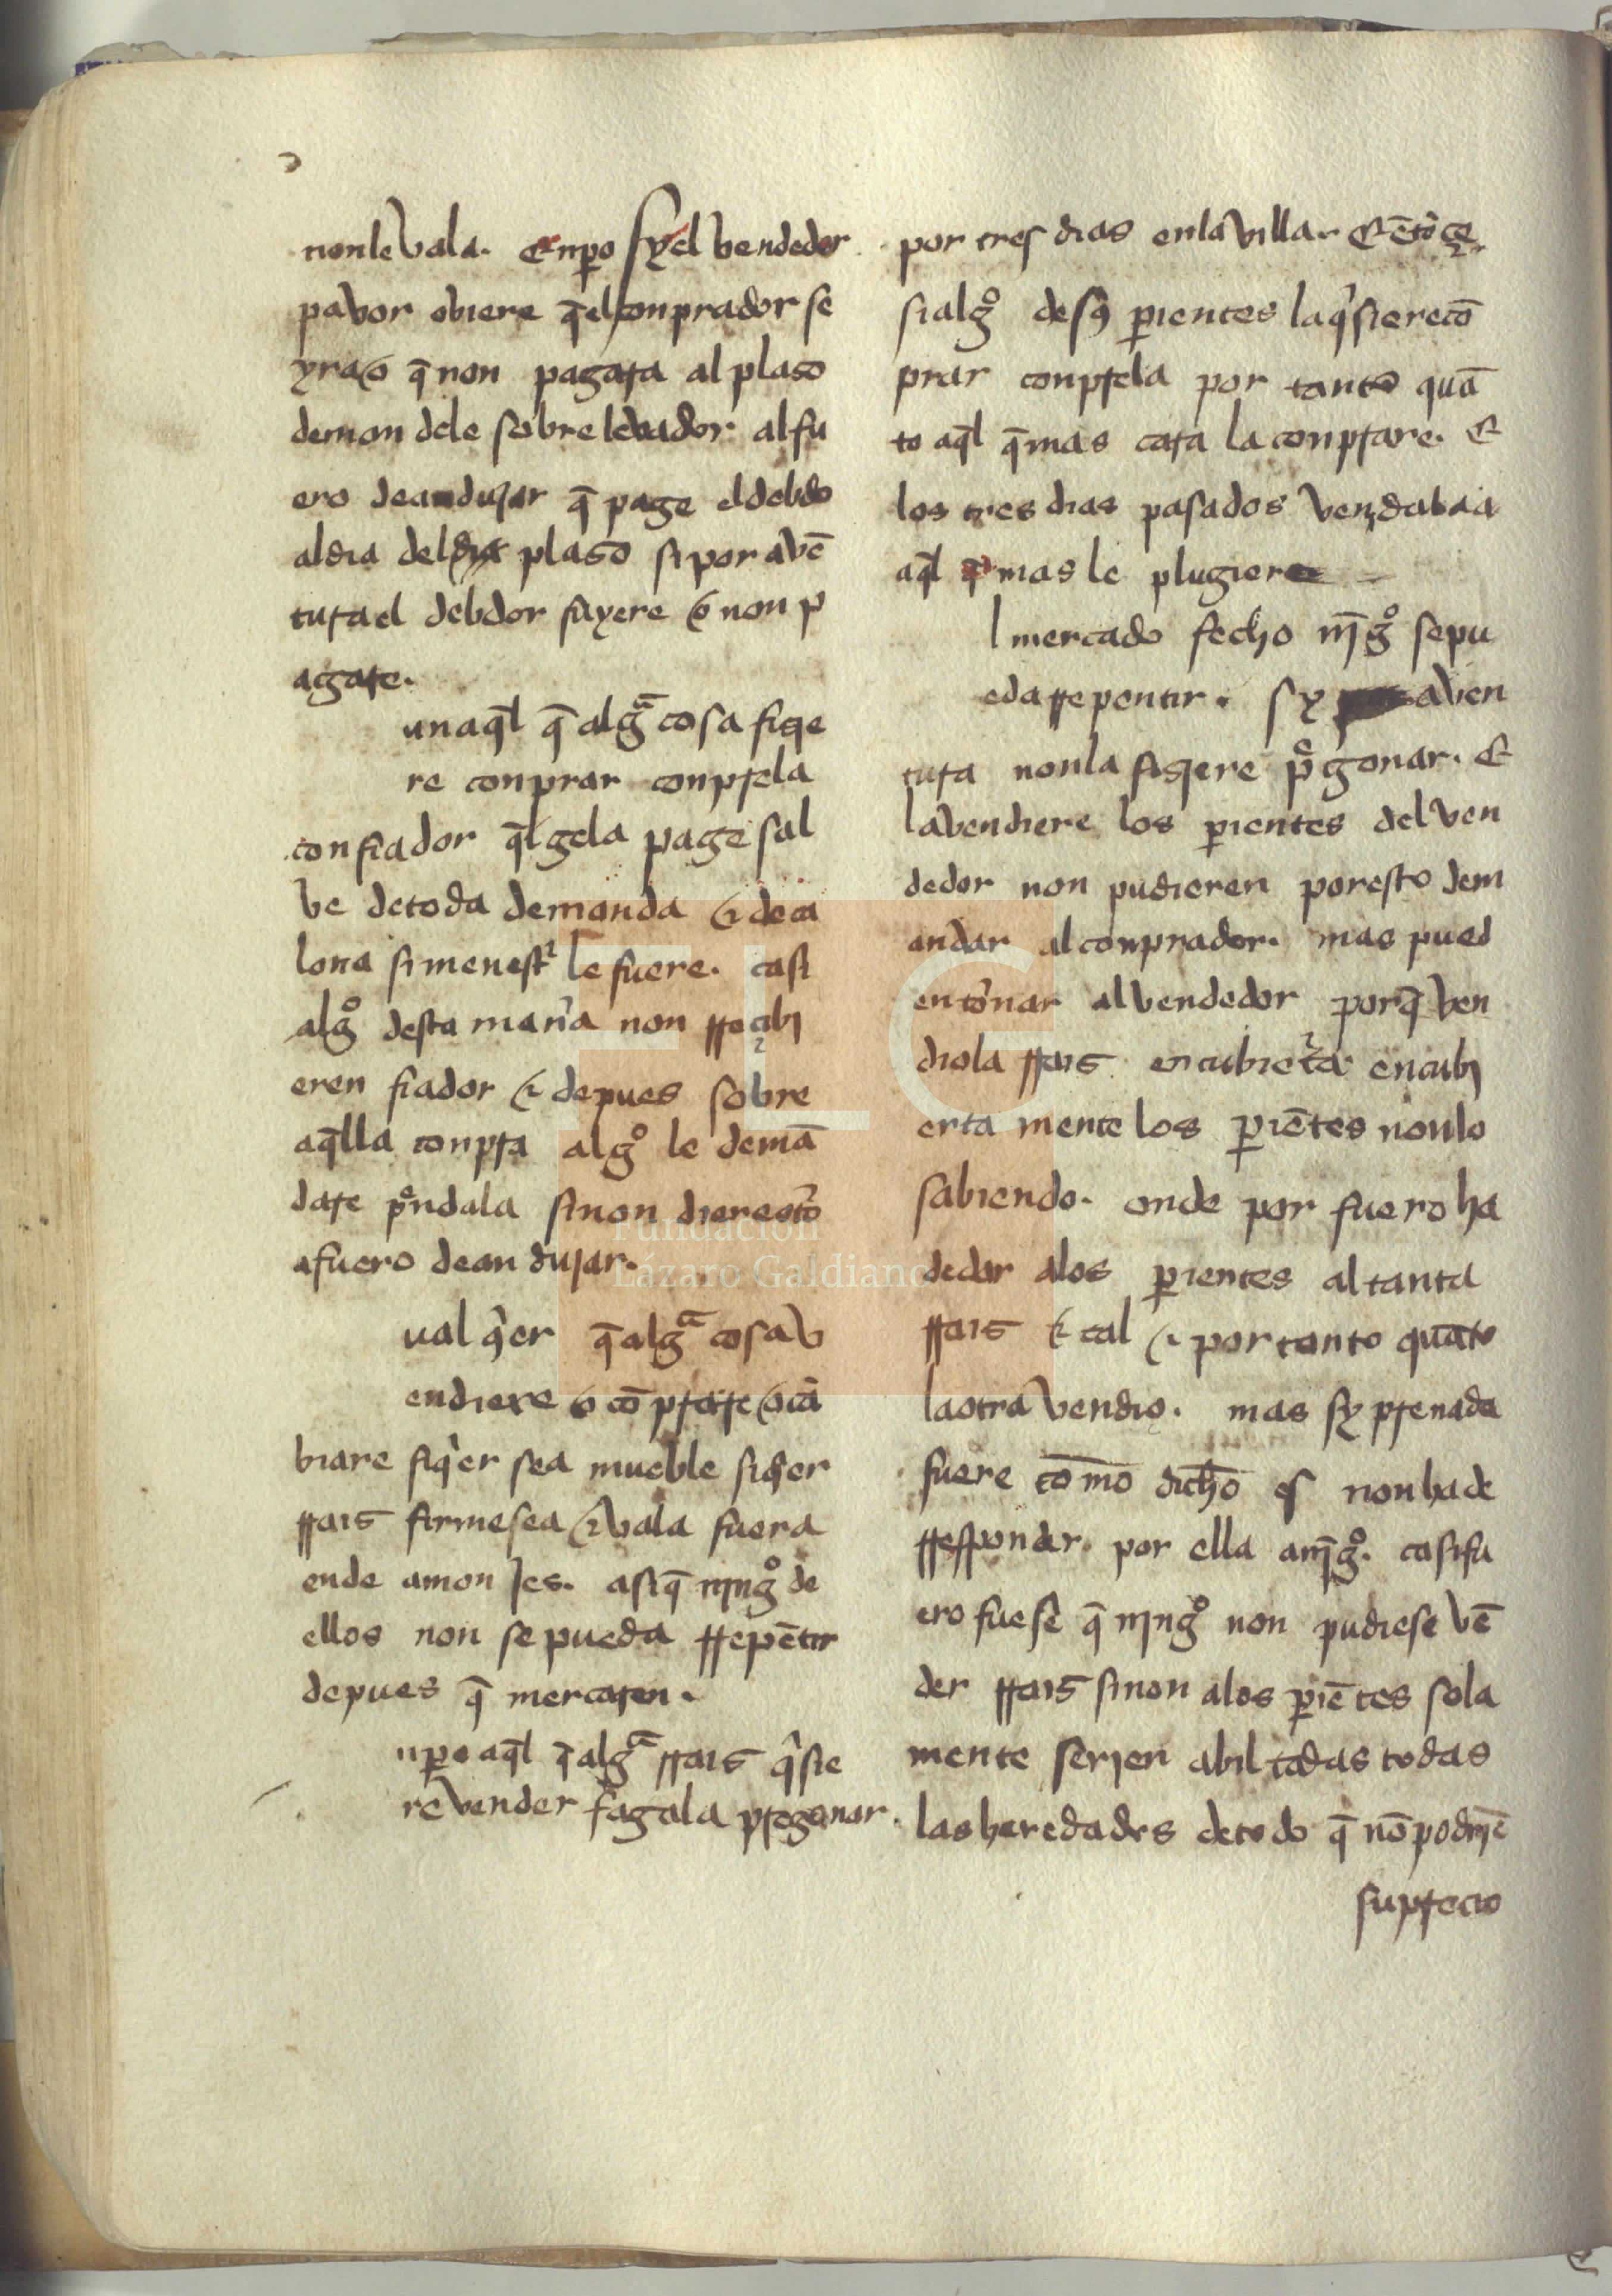 non le vala. Enp̲o sy el vendedor
pavor obiere q̄ el conprador se
yra o q̄ non pagara al plaso
demon dele sobre levador al fu
ero de andujar q̄ page el debdo
al dia del dia plaso si por avē
tura el debdor fuyere o non p
agare.
un aq̄l q̄ algᵃ cosa fiqe
re conprar conprela
con fiador q̄l gela page sal
ve de toda demanda ⁊ de ca
lona si menestᷣ le fuere. ca si
algº desta manᷣa non rreçibi
eren fiador ⁊ depues sobre
aq̄lla conpra algº le demā
dare pᵉndala si non diere otᷣo
a fuero de andujar.
ual qͥer q̄ algᵃ cosa v
endiere o cō prare o cā
biare siqͥer sea mueble siqͥer
rrais firme sea ⁊ vala fuera
ende a monjes. asi q̄ njngº de
ellos non se pueda rrepētir
depues q̄ mercaren.
np̲o aq̄l q̄ algᵃ rrais qͥsie
re vender fagala pregonar
por tres dias en la villa. E ētōçe
si algº de sꝯ p̲ientes la qͥsiere cō
prar conprela por tanto quā
to aq̄l q̄ mas cara la conprare. E
los tres dias pasados venda
aq̄l q̄ mas le plugiere
l mercado fecho nj̄gº se pu
eda rrepentir. sy aven
tura non la fisiere pᵉgonar. E
la vendiere los p̲ientes del ven
dedor non pudieren por esto dem
andar al conprador. mas pued
en tornar al vendedor porq̄ ven
diola rrais encubierta encubj
erta mente los p̲iētes non lo
sabiendo. onde por fuero ha
de dar a los p̲ientes al tanta
rrais ⁊ tal ⁊ por tanto quāto
la otra vendio. mas sy prenada
fuere como dicho es non ha de
rresponder por ella a nj̄gº. ca si fu
ero fuese q̄ njngº non pudiese vē
der rrais sinon a los p̲iētes sola
mente serien abiltadas todas
las heredades de todo q̄ nō podriē
su precio
Fundación
Lázaro Galdiano
FLG